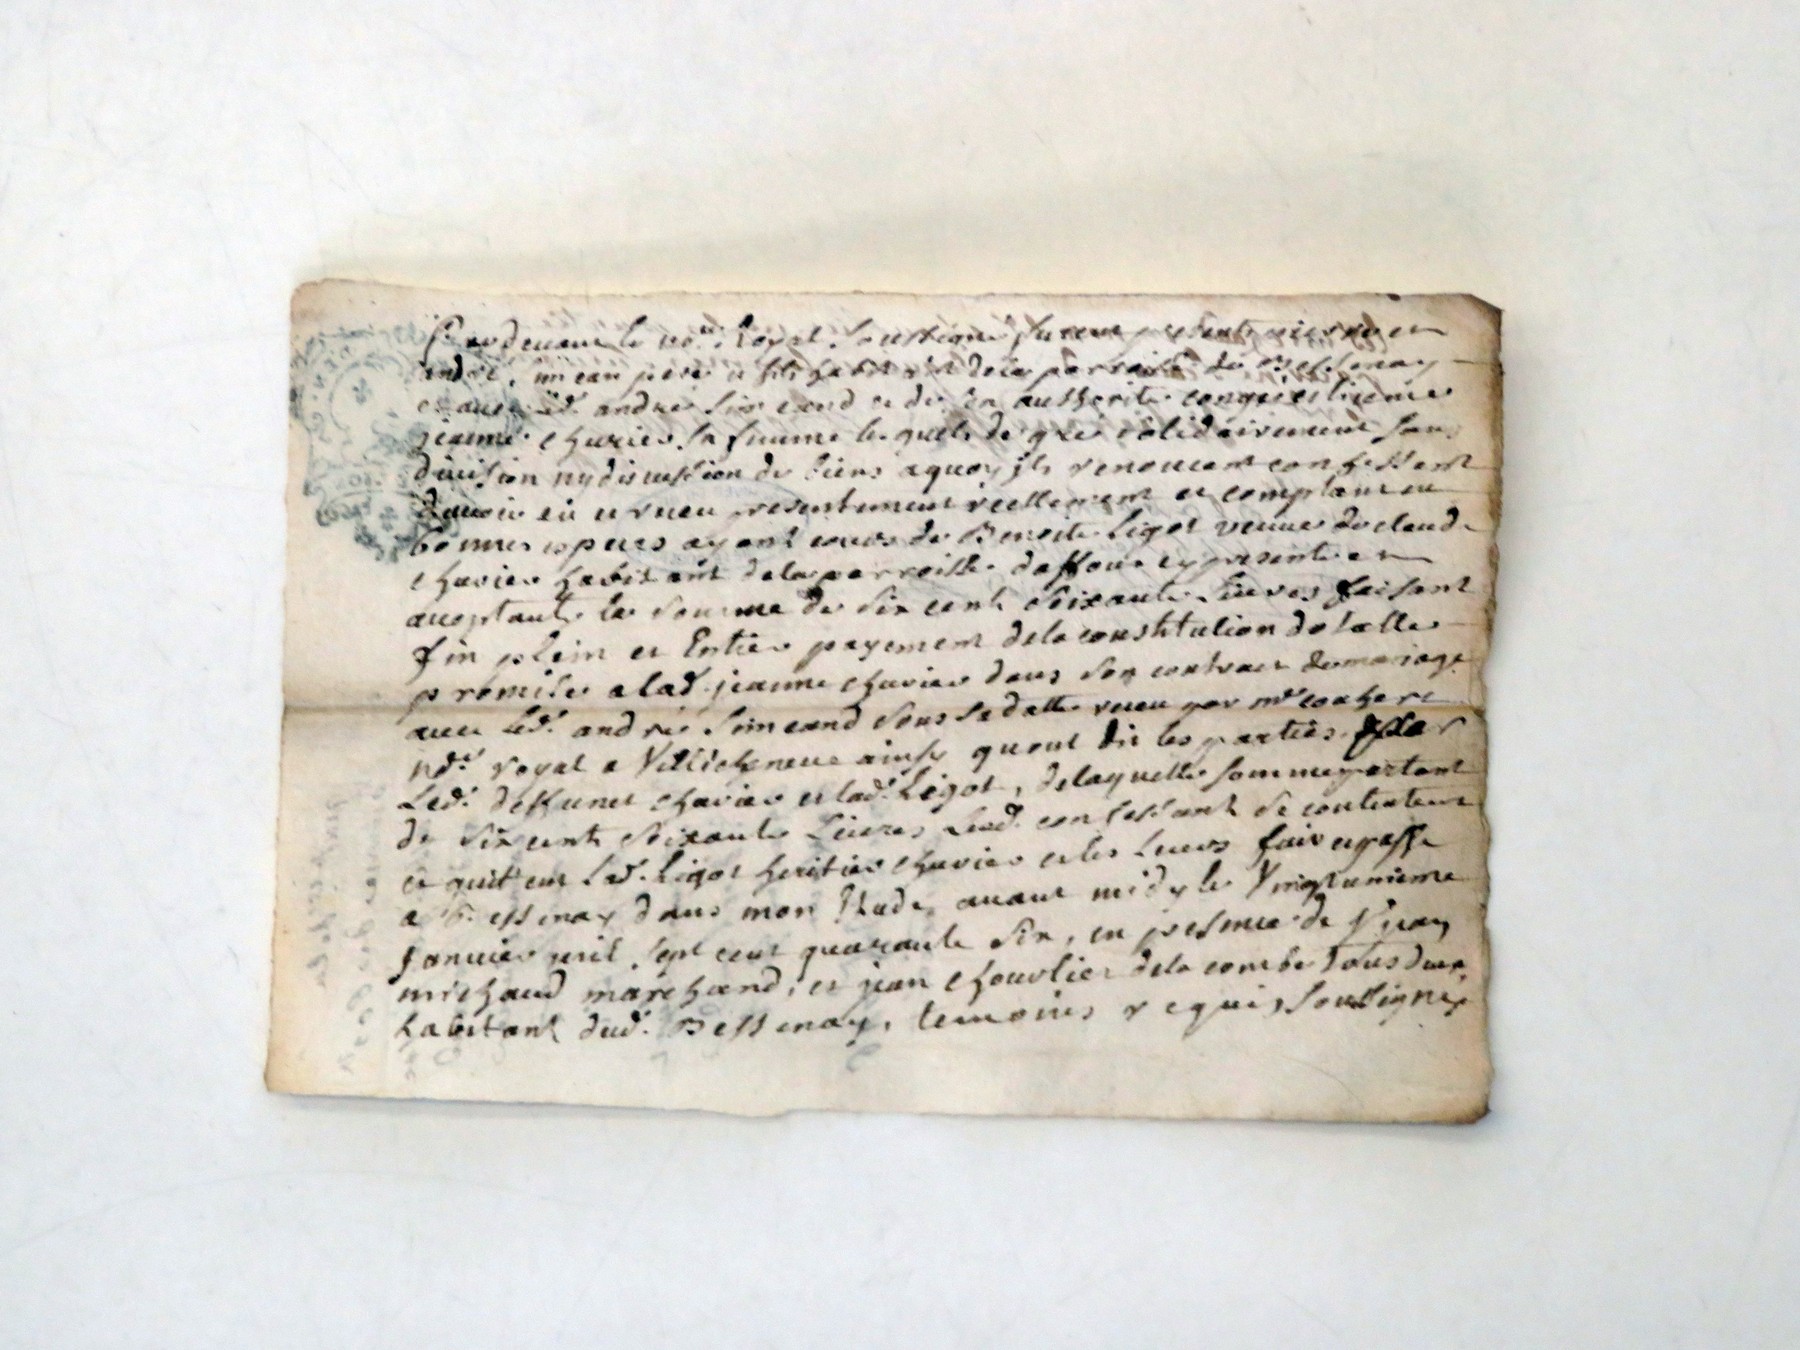 Pardevant le no.re Royal Soussigné furent presents pierre et
andré Simeand pere et fils habitant dela parroisse de Bessenay
et avec led. andré Simeand et de son authorité
jeanne charier sa femme lesquels de gré solidairement sans
division ny discussion de biens a quoy ils renoncent confessent
davoir eu et receu presentement reellement et comptant en
bonnes especes ayant cours de Benoite Ligot veuve de claude
charier habitant dela parroisse presente et
aceptante la somme de six cents soixante Livres faisant
fin plein et Entier payement dela constitution dotalle
promise a lad. jeanne charier dans son contract de mariage
avec led. andré Simeand sous sa datte receu par me
no.re royal a ainsy quont dit les parties par
Led. deffunct charier et lad. Ligot, delaquelle somme
de six cents soixante Livres Lesd. confessants se contentent
et quittent Lad. Ligot heritier charier et les Leurs fait et passé
a Bessenay dans mon Etude, avant midy le Vingtunieme
Janvier mil sept cent quarante six, en presence de
michaud marchand, et jean dela combe Tous deux
habitant dud. Bessenay, temoins requis, soussignés